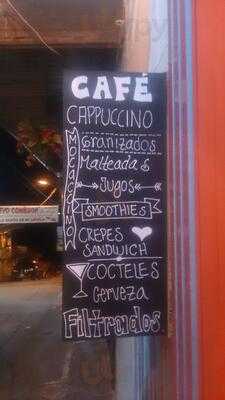 CAFÉ
CAPPUCCINO
MOCACCINO
Granizados
Malteadas
Jugos
SMOOTHIES
CREPES
SANDWICH
COCTELES
Cerveza
Filtrados